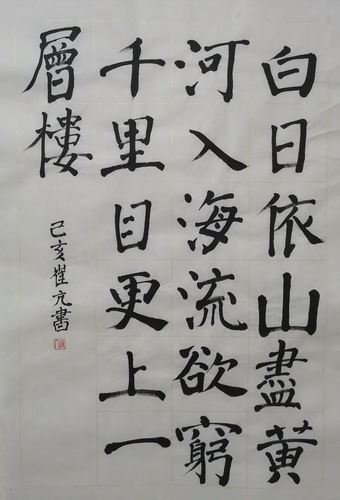 白日依山盡黃
河入海流欲窮
千里目更上一
層樓
己亥崔亢書